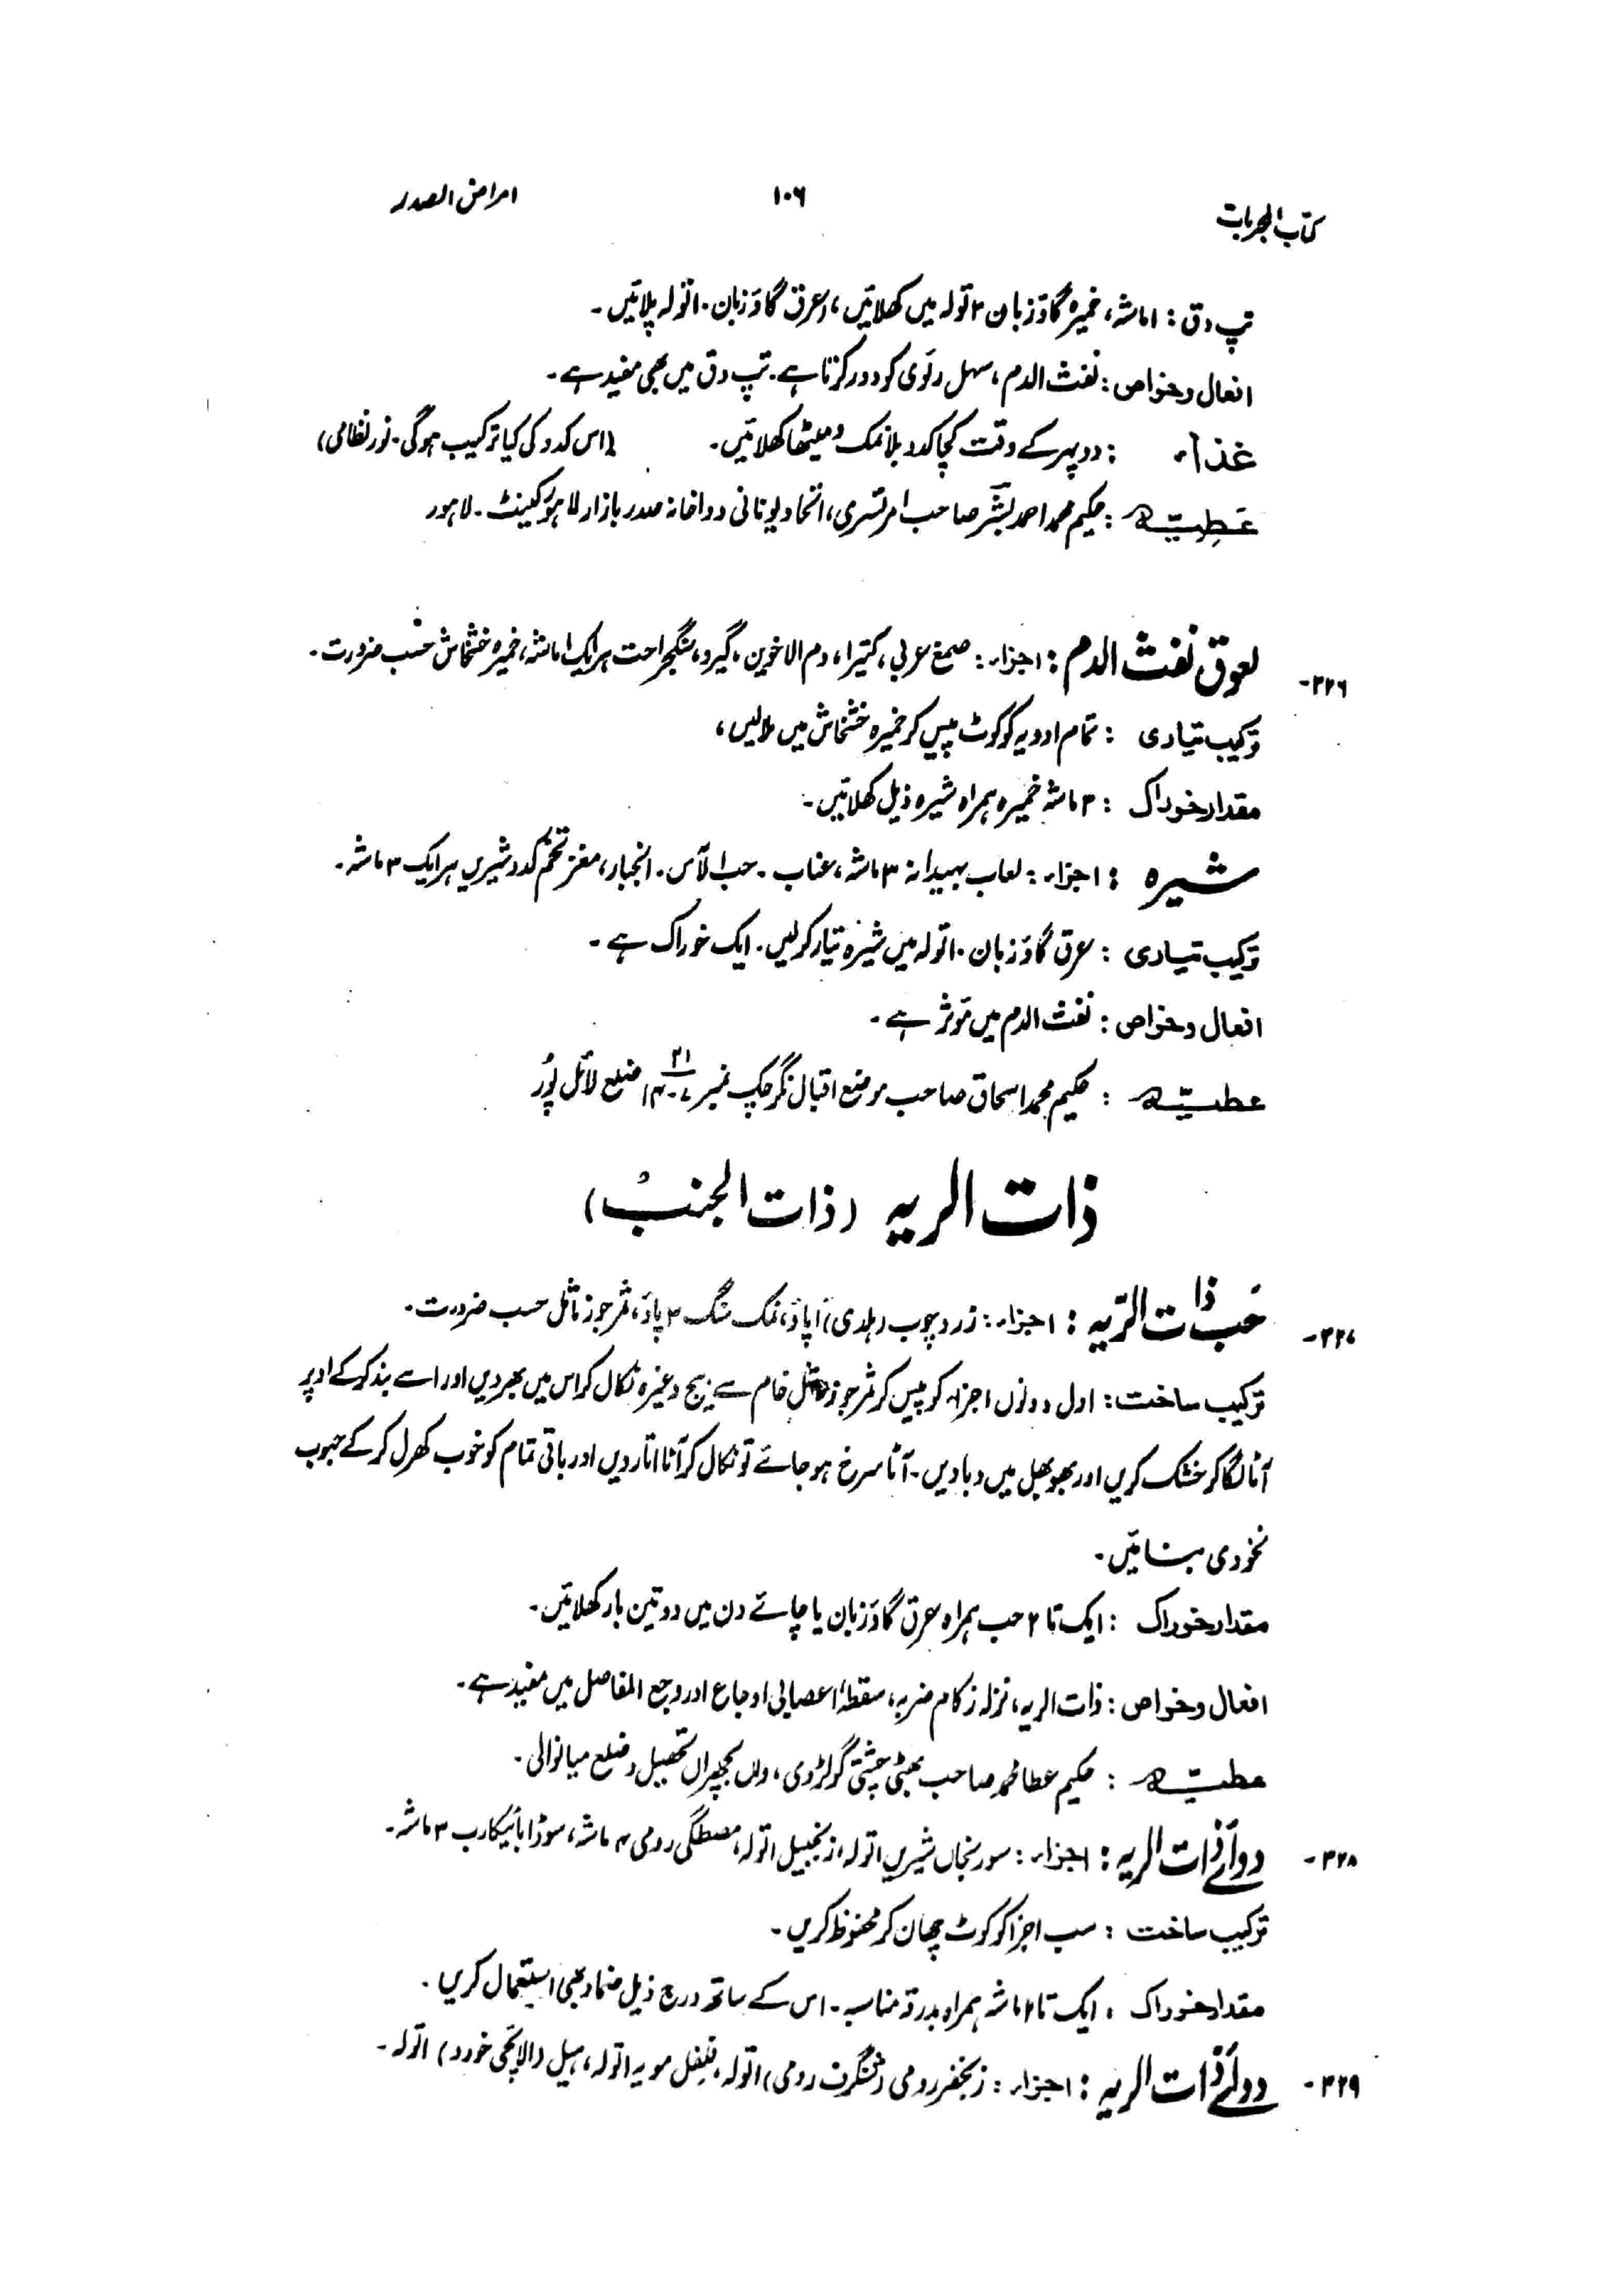 کتاب المجربات ۱۰۶ امراض الصدر
تپ دق : ۱ ماشہ، خمیرہ گاؤزبان ۲ تولہ میں کھلائیں، عرق گاؤزبان ۱۰ تولہ پلائیں۔
افعال و خواص : نفث الدم، سہل رئوی کو دور کرتا ہے۔ تپ دق میں بھی مفید ہے۔
غذاء : دوپہر کے وقت کچا کدو بلا نمک و میٹھا کھلائیں۔ (اس کدو کی کیا ترکیب ہوگی۔ نور نظامی)
عطیہ : حکیم محمد احمد بشر صاحب امرتسری، اتحاد یونانی دواخانہ صدر بازار لاہور کینٹ۔ لاہور
۳۲۶- لعوق نفث الدم : اجزاء : صمغ عربی، کتیرا، دم الاخوین، گیرو، سنگجراحت ہر ایک ۱ ماشہ، خمیرہ خشخاش حسب ضرورت۔
ترکیب تیاری : تمام ادویہ کو کوٹ پیس کر خمیرہ خشخاش میں ملالیں،
مقدار خوراک : ۲ ماشہ خمیرہ ہمراہ شیرہ ذیل کھلائیں۔
شیرہ : اجزاء : لعاب بہیدانہ ۳ ماشہ، عناب۔ حب الآس۔ انجبار، مغز تخم کدو شیریں ہر ایک ۳ ماشہ۔
ترکیب تیاری : عرق گاؤزبان ۱۰ تولہ میں شیرہ تیار کرلیں۔ ایک خوراک ہے۔
افعال و خواص : نفث الدم میں مؤثر ہے۔
عطیہ : حکیم محمد اسحاق صاحب موضع اقبال نگر چک نمبر ضلع لائل پور
ذات الریہ (ذات الجنب)
۳۲۷- حب ذات الریہ : اجزاء : زرد چوب (ہلدی) ۱ پاؤ، نمک سنگ ۲ پاؤ، ثمر جوز ماثل حسب ضرورت۔
ترکیب ساخت : اول دونوں اجزاء کو پیس کر ثمر جوز ماثل خام سے بیج وغیرہ نکال کر اس میں بھر دیں اور اسے بند کرکے اوپر
آٹا لگا کر خشک کریں اور بھوبھل میں دبا دیں۔ آٹا سرخ ہو جائے تو نکال کر آٹا اتار دیں اور باقی تمام کو خوب کھرل کرکے حبوب
نخودی بنائیں۔
مقدار خوراک : ایک تا ۲ حب ہمراہ عرق گاؤزبان یا چائے دن میں دو تین بار کھلائیں۔
افعال و خواص : ذات الریہ، نزلہ زکام ضربہ، سقطہ اعصابی اوجاع اور وجع المفاصل میں مفید ہے۔
عطیہ : حکیم عطا محمد صاحب بھٹی چشتی گولڑوی، واں بھچراں تحصیل و ضلع میانوالی۔
۳۲۸- دوائے ذات الریہ : اجزاء : سورنجاں شیریں ۱ تولہ، زنجبیل ۱ تولہ، مصطگی رومی ۴ ماشہ، سوڈا بائیکارب ۳ ماشہ۔
ترکیب ساخت : سب اجزا کو کوٹ چھان کر محفوظ کریں۔
مقدار خوراک : ایک تا ۲ ماشہ ہمراہ بدرقہ مناسبہ۔ اس کے ساتھ درج ذیل ضماد بھی استعمال کریں۔
۳۲۹- دوائے ذات الریہ : اجزاء : زنجفر رومی (شنگرف رومی) ۱ تولہ، فلفل مویہ ۱ تولہ، ہیل (الائچی خورد) ۱ تولہ۔